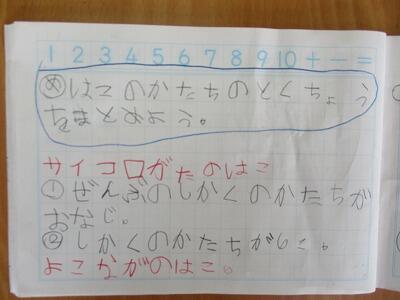 1 2 3 4 5 6 7 8 9 10 + - =
め はこのかたちのとくちょう
をまとめよう。
サイコロがたのはこ
① ぜんぶのしかくのかたちが
おなじ。
② しかくのかたちが6こ。
よこながのはこ。